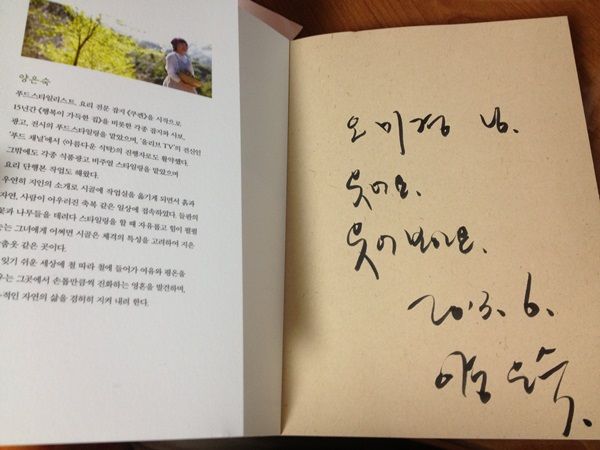 양은숙
푸드스타일리스트. 요리 전문 잡지 《쿠켄》을 시작으로
15년간 《행복이 가득한 집》을 비롯한 각종 잡지와 사보,
광고, 전시의 푸드스타일링을 맡았으며, '올리브 TV'의 전신인
'푸드 채널'에서 〈아름다운 식탁〉의 진행자로도 활약했다.
그밖에도 각종 식품광고 비주얼 스타일링을 맡았으며
요리 단행본 작업도 해왔다.
우연히 지인의 소개로 시골에 작업실을 옮기게 되면서 흙과
자연, 사람이 어우러진 축복 같은 일상에 접속하였다. 들판의
꽃과 나무들을 데려다 스타일링을 할 때 자유롭고 힘이 펄펄
그녀에게 어쩌면 시골은 체격의 특성을 고려하여 지은
춤옷 같은 곳이다.
잊기 쉬운 세상에 철 따라 철에 들어가 여유와 평온을
그곳에서 손톱만큼씩 진화하는 영혼을 발견하며,
자연의 삶을 겸허히 지켜 내려 한다.
오미경 님.
웃어요.
웃어보아요.
2013. 6.
양은숙.